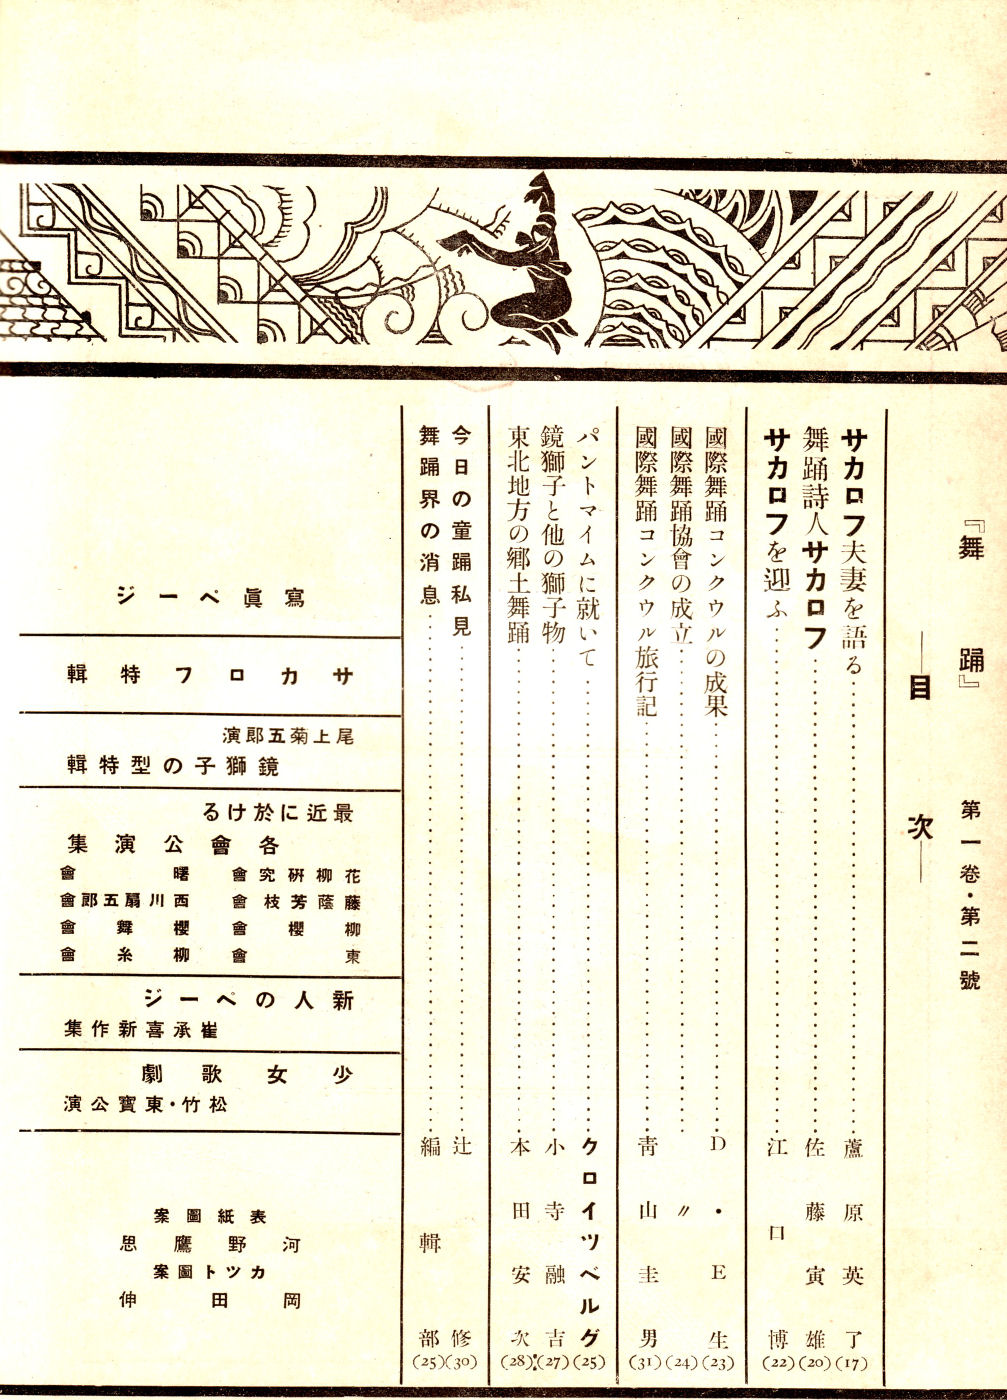 『舞踊』
第一卷・第二號
目次
サカロフ夫妻を語る……蘆原英了(17)
舞踊詩人サカロフ……佐藤寅雄(20)
サカロフを迎ふ……江口博(22)
國際舞踊コンクウルの成果……D・E生(23)
國際舞踊協會の成立……〃(24)
國際舞踊コンクウル旅行記……靑山圭男(31)
パントマイムに就いて……クロイツベルグ(25)
鏡獅子と他の獅子物……小寺融吉(27)
東北地方の鄕土舞踊……本田安次(28)
今日の童踊私見……辻修(30)
舞踊界の消息……編輯部(25)
寫眞ページ
サカロフ特輯
尾上菊五郎演
鏡獅子の型特輯
最近に於ける
各會公演集
花柳硏究會 曙會
藤蔭芳枝會 西川扇五郎會
柳櫻會 櫻舞會
東會 柳糸會
新人のページ
崔承喜新作集
少女歌劇
松竹・東寶公演
表紙圖案
河野鷹思
カツト圖案
岡田伸